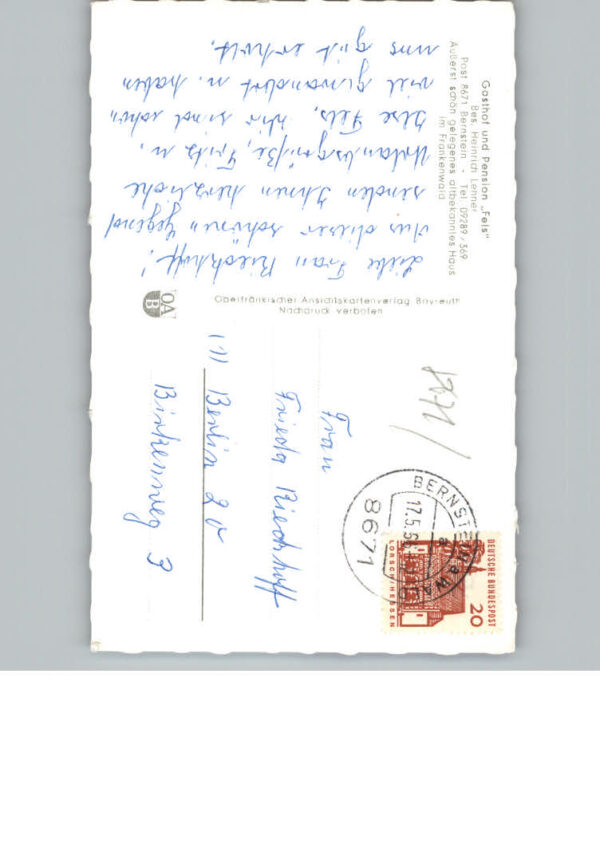 Gasthof und Pension „Fels"
Bes. Heinrich Lehner
Post 8671 Bernstein · Tel. 09289/369
Äußerst schön gelegenes altbekanntes Haus
im Frankenwald
Liebe Frau Rieckhoff!
Aus dieser schönen Gegend
senden Ihnen herzliche
Urlaubsgrüße, Fritz u.
Ilse Fels, Wir sind schon
viel gewandert u. haben
uns gut erholt.
OA
B
Oberfränkischer Ansichtskartenverlag Bayreuth
Nachdruck verboten
DEUTSCHE BUNDESPOST
20
LORSCH/HESSEN
8671
17.5.6
Frau
Frieda Rieckhoff
1 Berlin 20
Birkenweg 3